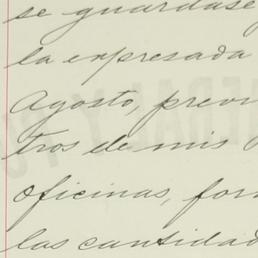 se guardase
la expresada
Agosto, previ
tros de mis
oficinas, for
las cantidad